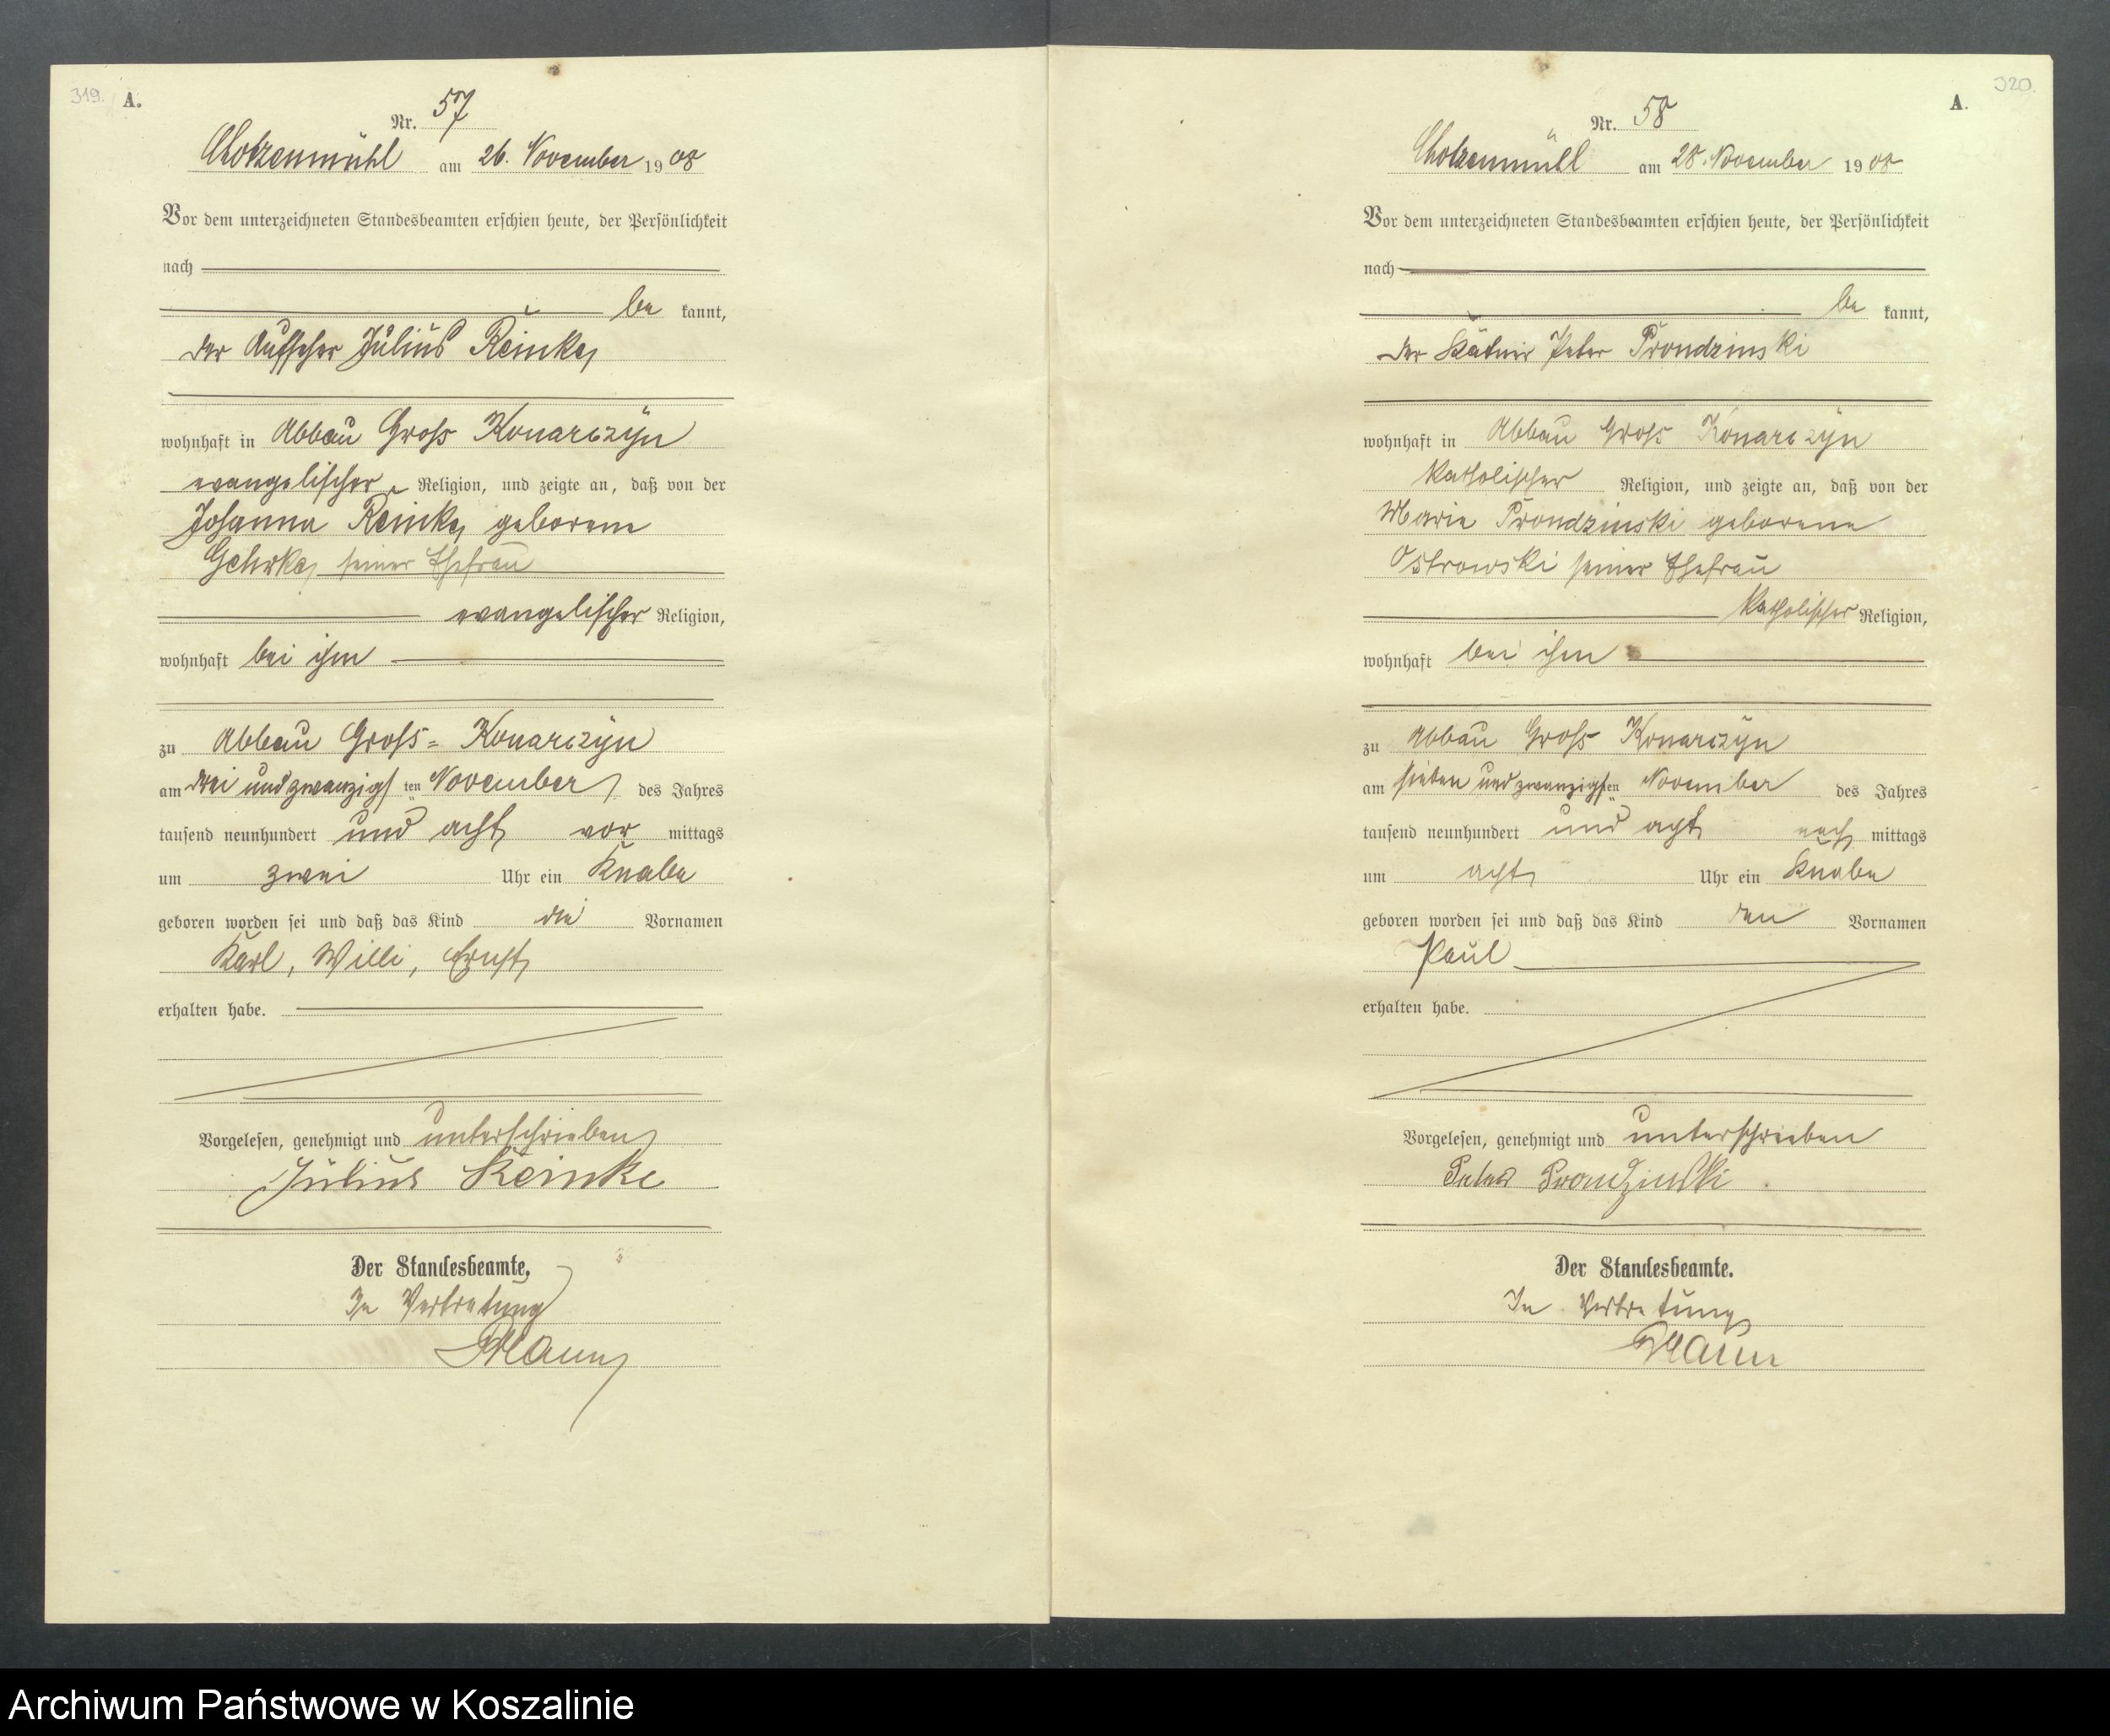 319.
A.
Nr. 57
Chotzenmühl am 26. November 1908
Vor dem unterzeichneten Standesbeamten erschien heute, der Persönlichkeit
nach
be kannt,
der Aufseher Julius Reinke,
wohnhaft in Abbau Gross Konarczyn
evangelischer Religion, und zeigte an, daß von der
Johanna Reinke, geborene
Gehrke, seiner Ehefrau
evangelischer Religion,
wohnhaft bei ihm
zu Abbau Gross= Konarczyn
am drei und zwanzigsten November des Jahres
tausend neunhundert und acht vor mittags
um zwei Uhr ein Knabe
geboren worden sei und daß das Kind die Vornamen
Karl, Willi, Ernst
erhalten habe.
Vorgelesen, genehmigt und unterschrieben
Julius Reinke
Der Standesbeamte.
In Vertretung
320.
A.
Nr. 58
Chotzenmühl am 28. November 1908
Vor dem unterzeichneten Standesbeamten erschien heute, der Persönlichkeit
nach
be kannt,
der Kätner Peter Prondzinski
wohnhaft in Abbau Gross Konarczyn
katholischer Religion, und zeigte an, daß von der
Marie Prondzinski geborene
Ostrowski seiner Ehefrau
katholischer Religion,
wohnhaft bei ihm
zu Abbau Gross Konarczyn
am sieben und zwanzigsten November des Jahres
tausend neunhundert und acht nach mittags
um acht Uhr ein Knabe
geboren worden sei und daß das Kind den Vornamen
Paul
erhalten habe.
Vorgelesen, genehmigt und unterschrieben
Peter Prondzinski
Der Standesbeamte.
In Vertretung
Archiwum Państwowe w Koszalinie